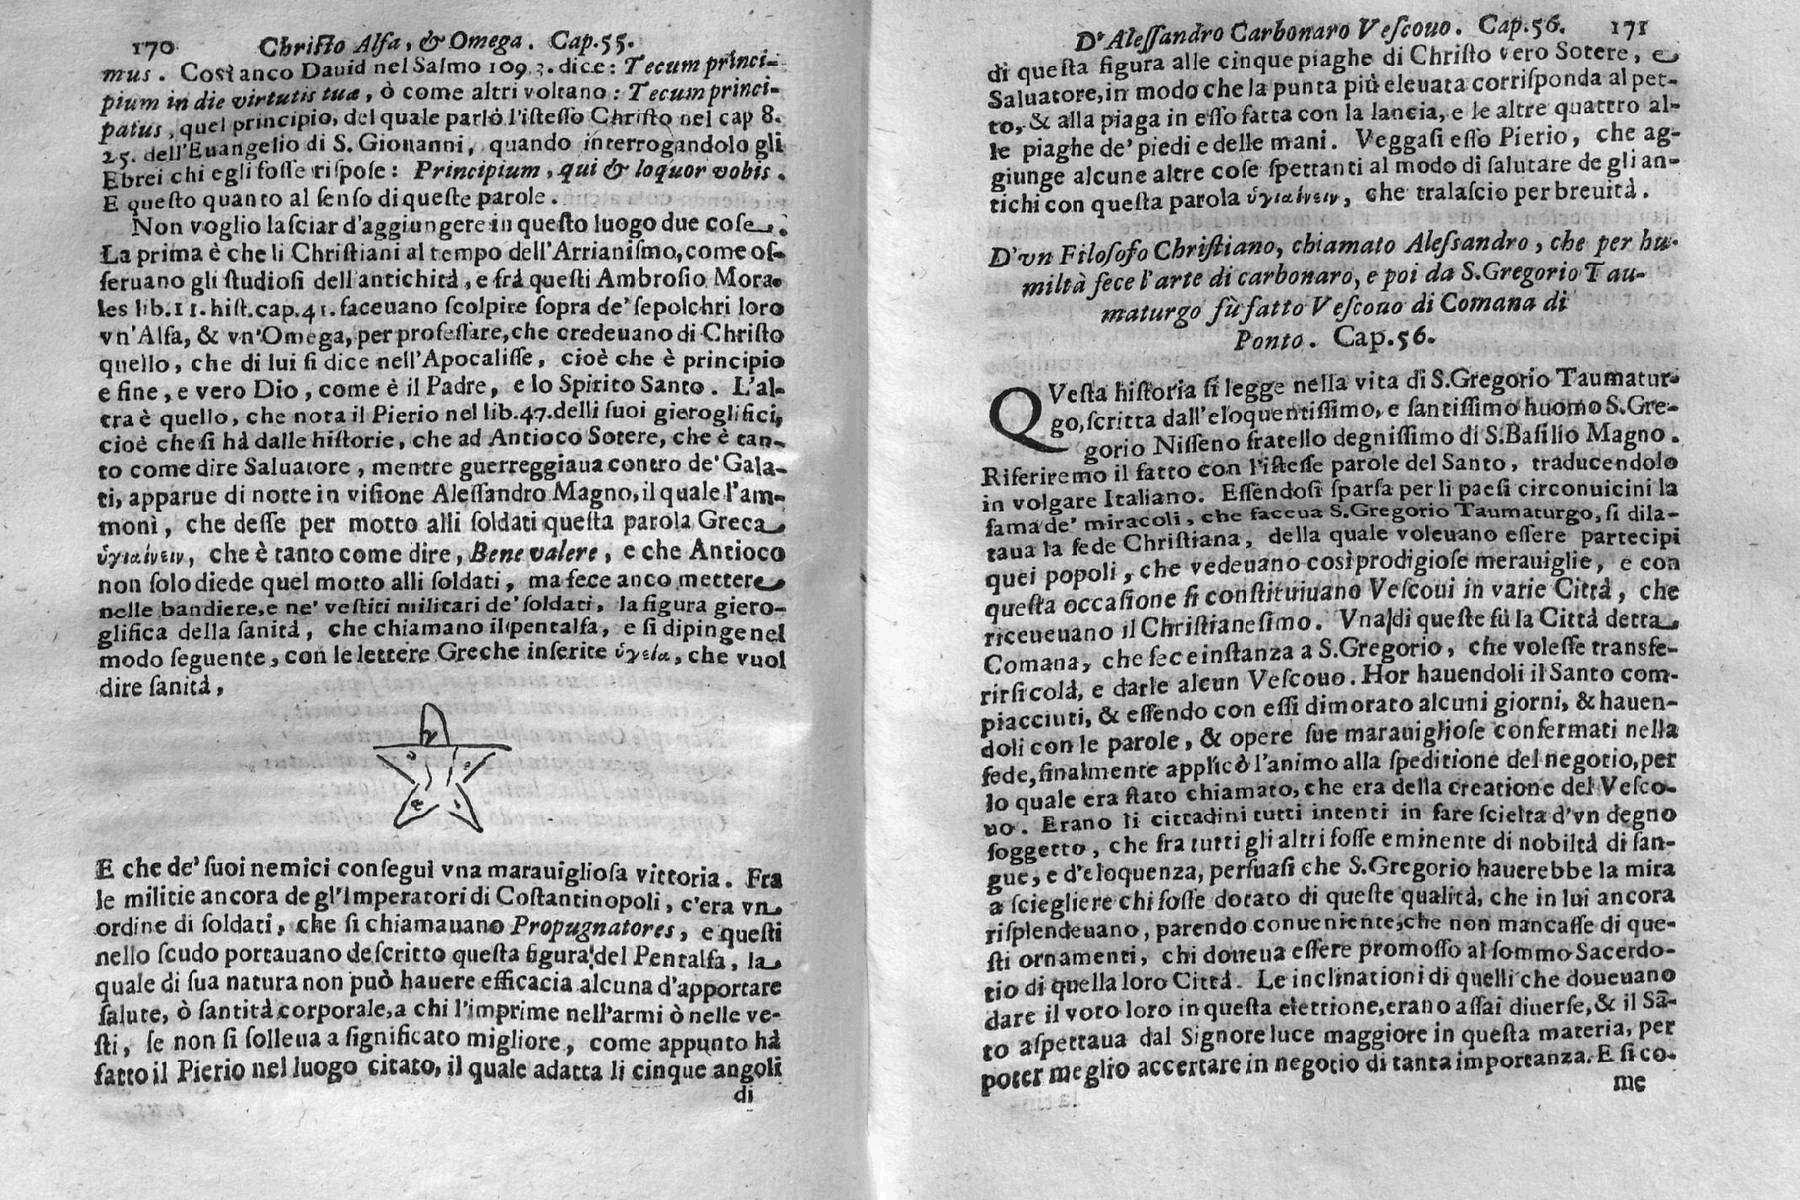 170 Chriſto Alfa, & Omega. Cap.55.
mus. Così anco Dauid nel Salmo 109.3. dice: Tecum princi-
pium in die virtutis tuæ, ò come altri voltano: Tecum princi-
patus, quel principio, del quale parlò l'iſteſſo Chriſto nel cap 8.
25. dell'Euangelio di S. Giouanni, quando interrogandolo gli
Ebrei chi egli foſſe riſpoſe: Principium, qui & loquor vobis.
E queſto quanto al ſenſo di queſte parole.
Non voglio laſciar d'aggiungere in queſto luogo due coſe.
La prima è che li Chriſtiani al tempo dell'Arrianiſmo, come oſ-
ſeruano gli ſtudioſi dell'antichità, e frà queſti Ambroſio Mora-
les lib.11.hiſt.cap.41.faceuano ſcolpire ſopra de'ſepolchri loro
vn'Alfa, & vn'Omega, per profeſſare, che credeuano di Chriſto
quello, che di lui ſi dice nell'Apocaliſſe, cioè che è principio
e fine, e vero Dio, come è il Padre, e lo Spirito Santo. L'al-
tra è quello, che nota il Pierio nel lib.47.delli ſuoi gieroglifici,
cioè che ſi hà dalle hiſtorie, che ad Antioco Sotere, che è tan-
to come dire Saluatore, mentre guerreggiaua contro de'Gala-
ti, apparue di notte in viſione Aleſſandro Magno, il quale l'am-
monì, che deſſe per motto alli ſoldati queſta parola Greca
ὑγιαίνειν, che è tanto come dire, Bene valere, e che Antioco
non ſolo diede quel motto alli ſoldati, ma fece anco mettere
nelle bandiere, e ne' veſtiti militari de' ſoldati, la figura giero-
glifica della ſanità, che chiamano il pentalfa, e ſi dipinge nel
modo ſeguente, con le lettere Greche inſerite ὑγεία, che vuol
dire ſanità,
E che de' ſuoi nemici conſeguì vna marauiglioſa vittoria. Fra
le militie ancora de gl'Imperatori di Coſtantinopoli, c'era vn
ordine di ſoldati, che ſi chiamauano Propugnatores, e queſti
nello ſcudo portauano deſcritto queſta figura del Pentalfa, la
quale di ſua natura non può hauere efficacia alcuna d'apportare
ſalute, ò ſantità corporale, a chi l'imprime nell'armi ò nelle ve-
ſti, ſe non ſi ſolleua a ſignificato migliore, come appunto hà
fatto il Pierio nel luogo citato, il quale adatta li cinque angoli
di
Dº Aleſſandro Carbonaro Veſcouo. Cap.56. 171
di queſta figura alle cinque piaghe di Chriſto vero Sotere, e
Saluatore, in modo che la punta più eleuata corriſponda al pet-
to, & alla piaga in eſſo fatta con la lancia, e le altre quattro al-
le piaghe de' piedi e delle mani. Veggaſi eſſo Pierio, che ag-
giunge alcune altre coſe ſpettanti al modo di ſalutare de gli an-
tichi con queſta parola ὑγιαίνειν, che tralaſcio per breuità.
D'vn Filoſofo Chriſtiano, chiamato Aleſſandro, che per hu-
miltà fece l'arte di carbonaro, e poi da S.Gregorio Tau-
maturgo fù fatto Veſcouo di Comana di
Ponto. Cap.56.
QVeſta hiſtoria ſi legge nella vita di S.Gregorio Taumatur-
go, ſcritta dall'eloquentiſſimo, e ſantiſſimo huomo S.Gre-
gorio Niſſeno fratello degniſſimo di S.Baſilio Magno.
Riferiremo il fatto con l'iſteſſe parole del Santo, traducendolo
in volgare Italiano. Eſſendoſi ſparſa per li paeſi circonuicini la
fama de' miracoli, che faceua S.Gregorio Taumaturgo, ſi dila-
taua la fede Chriſtiana, della quale voleuano eſſere partecipi
quei popoli, che vedeuano così prodigioſe merauiglie, e con
queſta occaſione ſi conſtituiuano Veſcoui in varie Città, che
riceueuano il Chriſtianeſimo. Vna di queſte fù la Città detta
Comana, che fece inſtanza a S.Gregorio, che voleſſe transfe-
rirſi colà, e darle alcun Veſcouo. Hor hauendoli il Santo com-
piacciuti, & eſſendo con eſſi dimorato alcuni giorni, & hauen-
doli con le parole, & opere ſue marauiglioſe confermati nella
fede, finalmente applicò l'animo alla ſpeditione del negotio, per
lo quale era ſtato chiamato, che era della creatione del Veſco-
uo. Erano li cittadini tutti intenti in fare ſcielta d'vn degno
ſoggetto, che fra tutti gli altri foſſe eminente di nobiltà di ſan-
gue, e d'eloquenza, perſuaſi che S.Gregorio hauerebbe la mira
a ſciegliere chi foſſe dotato di queſte qualità, che in lui ancora
riſplendeuano, parendo conueniente, che non mancaſſe di que-
ſti ornamenti, chi doueua eſſere promoſſo al ſommo Sacerdo-
tio di quella loro Città. Le inclinationi di quelli che doueuano
dare il voto loro in queſta elettione, erano aſſai diuerſe, & il Sā-
to aſpettaua dal Signore luce maggiore in queſta materia, per
poter meglio accertare in negotio di tanta importanza. E ſi co-
me